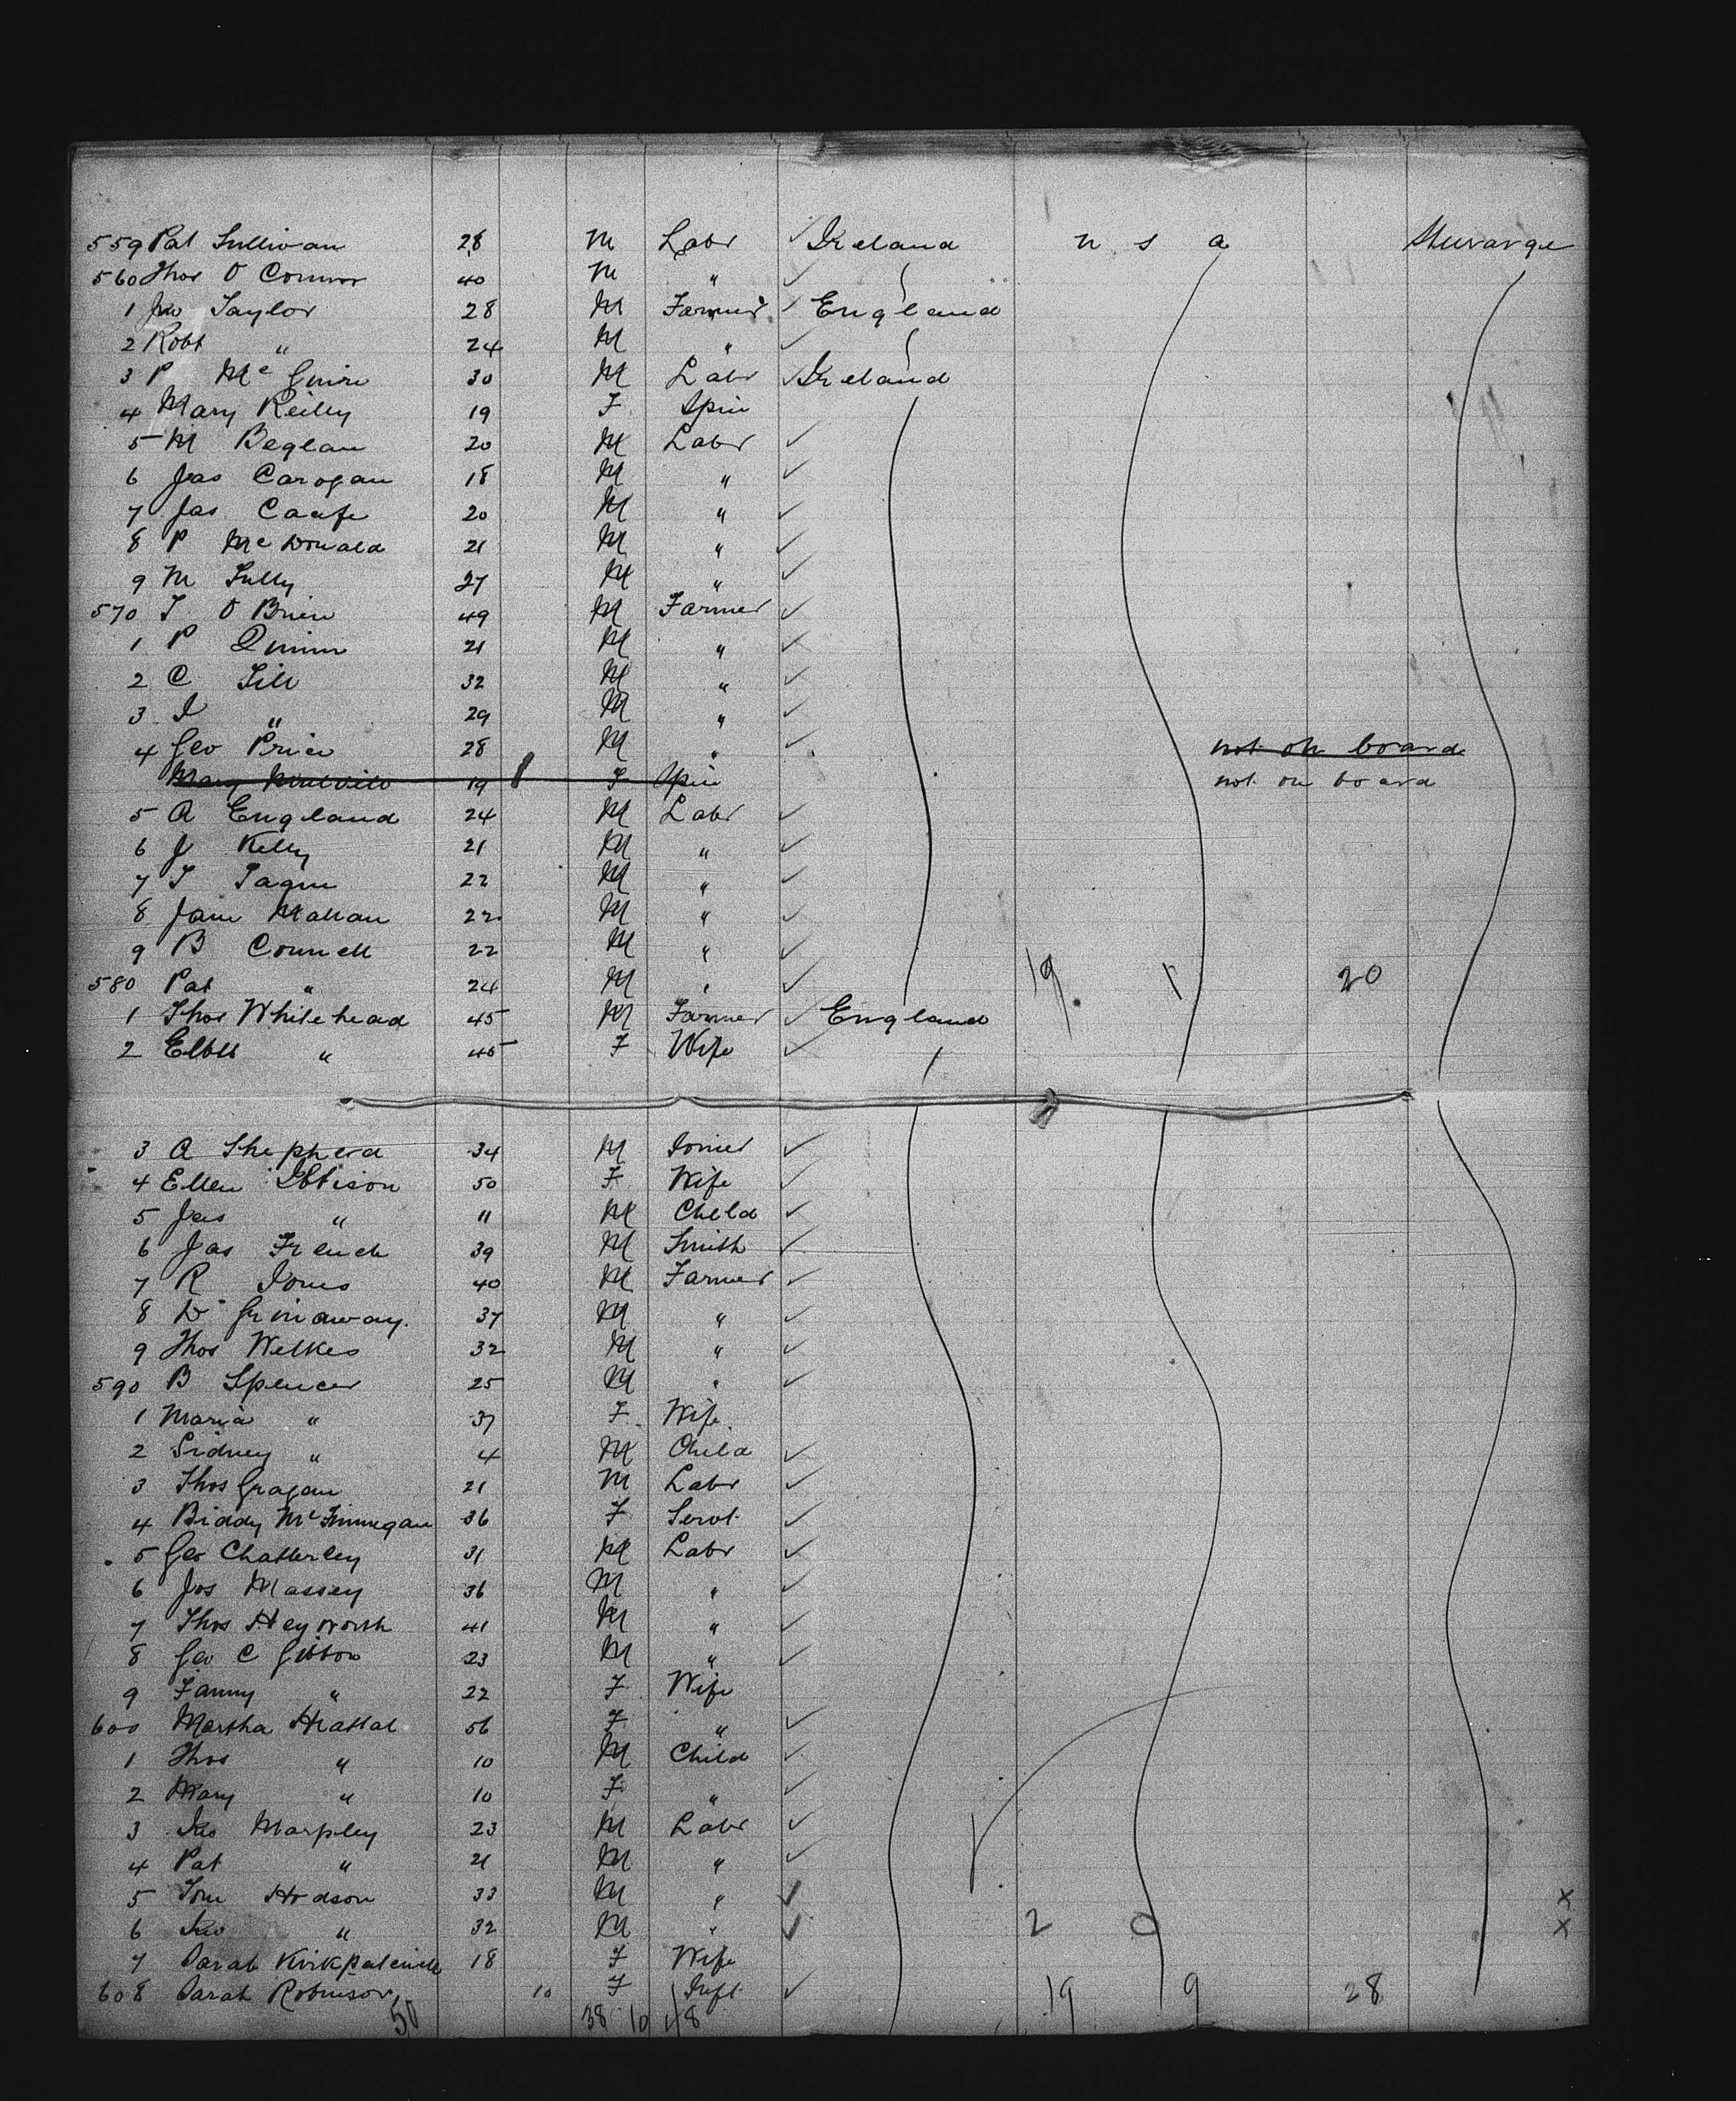 559 Pat Sullivan 28 M Labr Ireland U S A Steerage
560 Thos O Connor 40 M "
1 Jno Taylor 28 M Farmer England
2 Robt " 24 M "
3 P Mc Guire 30 M Labr Ireland
4 Mary Reilly 19 F Spin
5 M Beglan 20 M Labr
6 Jas Carogan 18 M "
7 Jas 20 M "
8 P Mc Donald 21 M "
9 M Tully 27 M "
570 T O Brien 49 M Farmer
1 P Quinn 21 M "
2 C 32 M "
3 " 29 M "
4 Geo Price 28 M " not on board
Mary 19 F Spin not on board
5 A England 24 M Labr
6 J Kelly 21 M "
7 T 22 M "
8 Jane Mallan 22 M "
9 B Connell 22 M "
580 Pat " 24 M " 19 1 20
1 Thos Whitehead 45 M Farmer England
2 Elbth " 45 F Wife
3 A Shepherd 34 M Joiner
4 Ellen Ibbison 50 F Wife
5 Jas " 11 M Child
6 Jas French 39 M Smith
7 R Jones 40 M Farmer
8 D Grinaway. 37 M "
9 Thos Welkes 32 M "
590 B Spencer 25 M "
1 Maria " 37 F Wife
2 Sidney " 4 M Child
3 Thos Gragan 21 M Labr
4 Biddy McFinnegan 36 F Servt
5 Geo Chatterley 31 M Labr
6 Jos Massey 36 M "
7 Thos Heyworth 41 M "
8 Geo C Gibbon 23 M "
9 Fanny " 22 F Wife
600 Martha Hrattal 56 F "
1 Thos " 10 M Child
2 Mary " 10 F "
3 Jno Marpley 23 M Labr
4 Pat " 21 M "
5 Tom Hodson 33 M " x
6 Jno " 32 M " 2 0 x
7 Sarah Kirkpatrick 18 F Wife
608 Sarah Robinson 10 F Inft 19 9 28
50 38 10 48